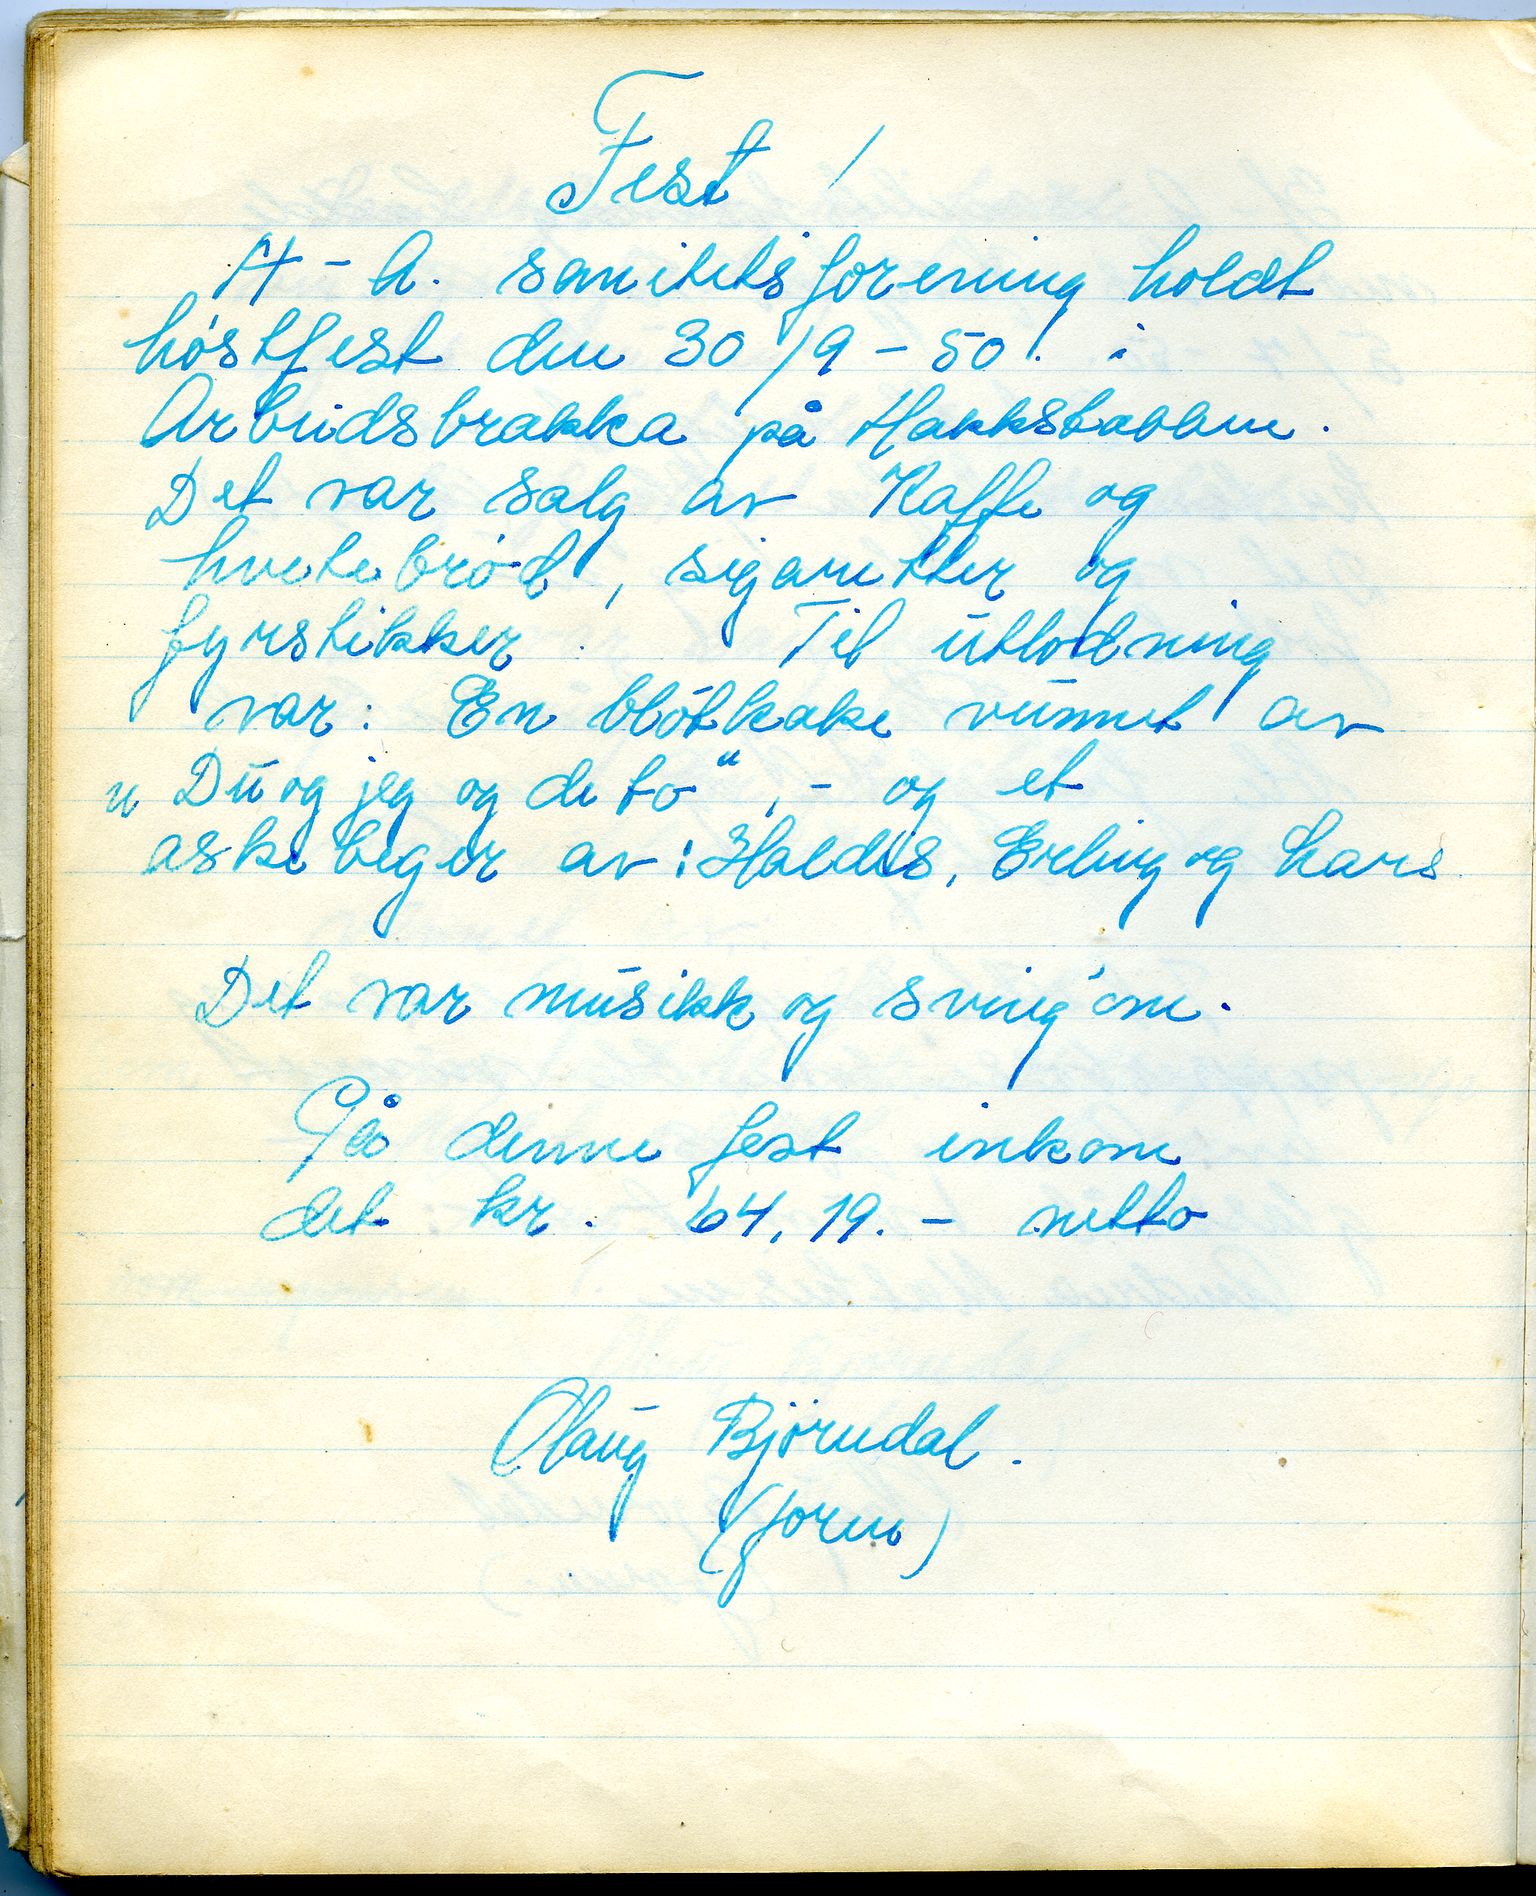 Fest!
H-A. sanitetsforening holdt
høstfest den 30/9-50. i
Arbeidsbrakka på Hakkstabben.
Det var salg av Kaffe og
hvetebrød, sigaretter og
fyrstikker. Til utlodning
var: En bløtkake vunnet av
„Du og jeg og de to“,- og et
askebeger av: Haldis, Erling og Lars
Det var musikk og sving'om.
På denne fest inkom
det kr. 64,19.- netto
Olaug Bjørndal.
(form)